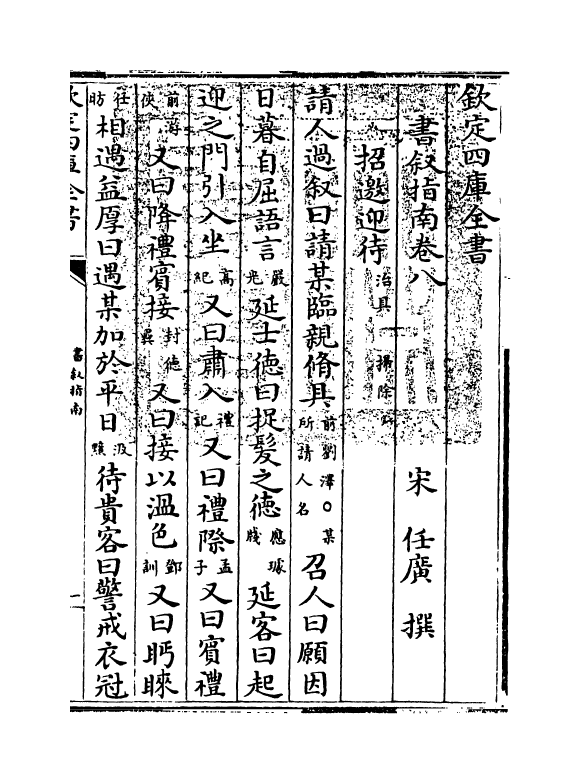 欽定四庫全書
書叙指南卷八
宋 任廣 撰
招邀迎待 治具 掃除
請人過叙曰請某臨親脩具 前劉澤○某所請人名 召人曰願因
日暮自屈語言 嚴光 延士徳曰捉髪之徳 應璩牋 延客曰起
迎之門引入坐 高紀 又曰肅入 禮記 又曰禮際 孟子 又曰賓禮
前 俠 又曰降禮賓接 封徳彞 又曰接以溫色 鄧訓 又曰眄睞
任昉 相遇益厚曰遇某加於平日 汲黯 待貴客曰警戒衣冠
欽定四庫全書
書叙指南
一